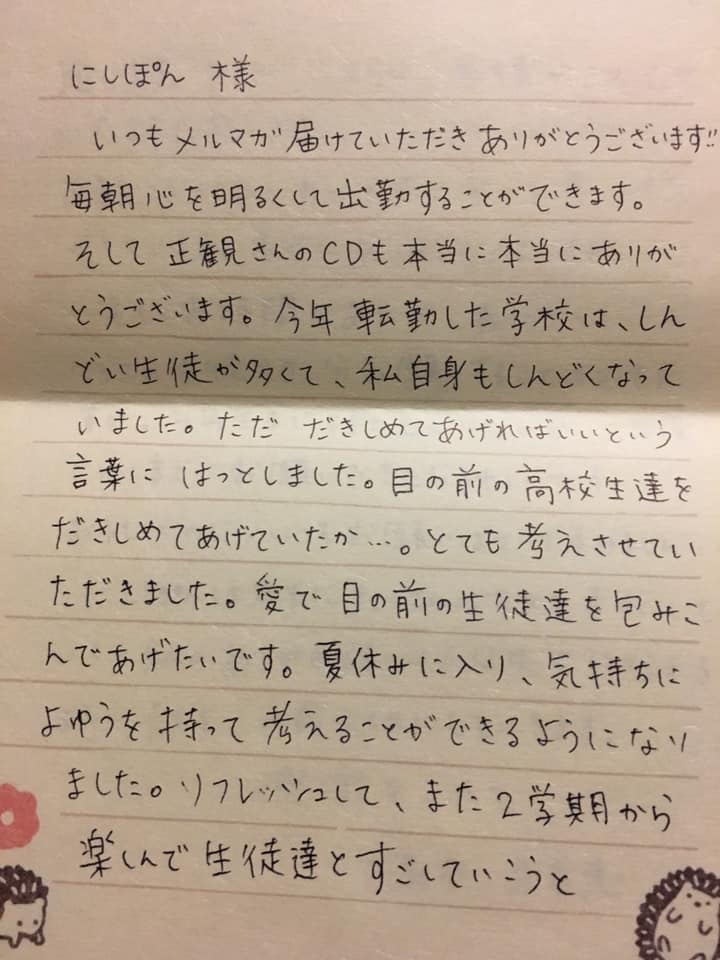 にしぽん 様
いつもメルマガ届けていただきありがとうございます!!
毎朝心を明るくして出勤することができます。
そして 正観さんのCDも本当に本当にありが
とうございます。今年 転勤した学校は、しん
どい生徒が多くて、私自身もしんどくなって
いました。ただ だきしめてあげればいいという
言葉に はっとしました。目の前の高校生達を
だきしめてあげていたか…。とても 考えさせてい
ただきました。愛で 目の前の生徒達を包みこ
んであげたいです。夏休みに入り、気持ちに
よゆうを持って 考えることができるようになり
ました。リフレッシュして、また2学期から
楽しんで 生徒達とすごしていこうと